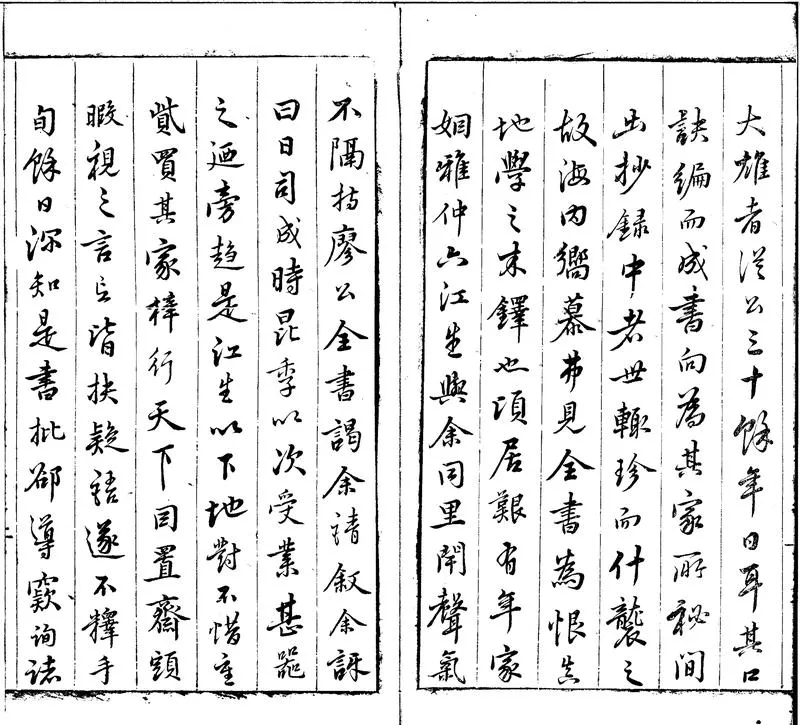 大雄者從公三十餘年日耳其口
訣編而成書向為其家所秘間
出抄錄中者世輒珍而什襲之
故海內嚮慕弗見全書為恨真
地學之木鐸也頃居艱有年家
姻雅仲六江生與余同里閈聲氣
不隔持廖公全書謁余請敘余訝
曰日司成時昆季以次受業甚器
之廼旁趨是江生以下地對不惜重
貲買其家梓行天下因置齋頭
暇視之言言皆抉疑語遂不釋手
旬餘日深知是書批郤導窾詢諸